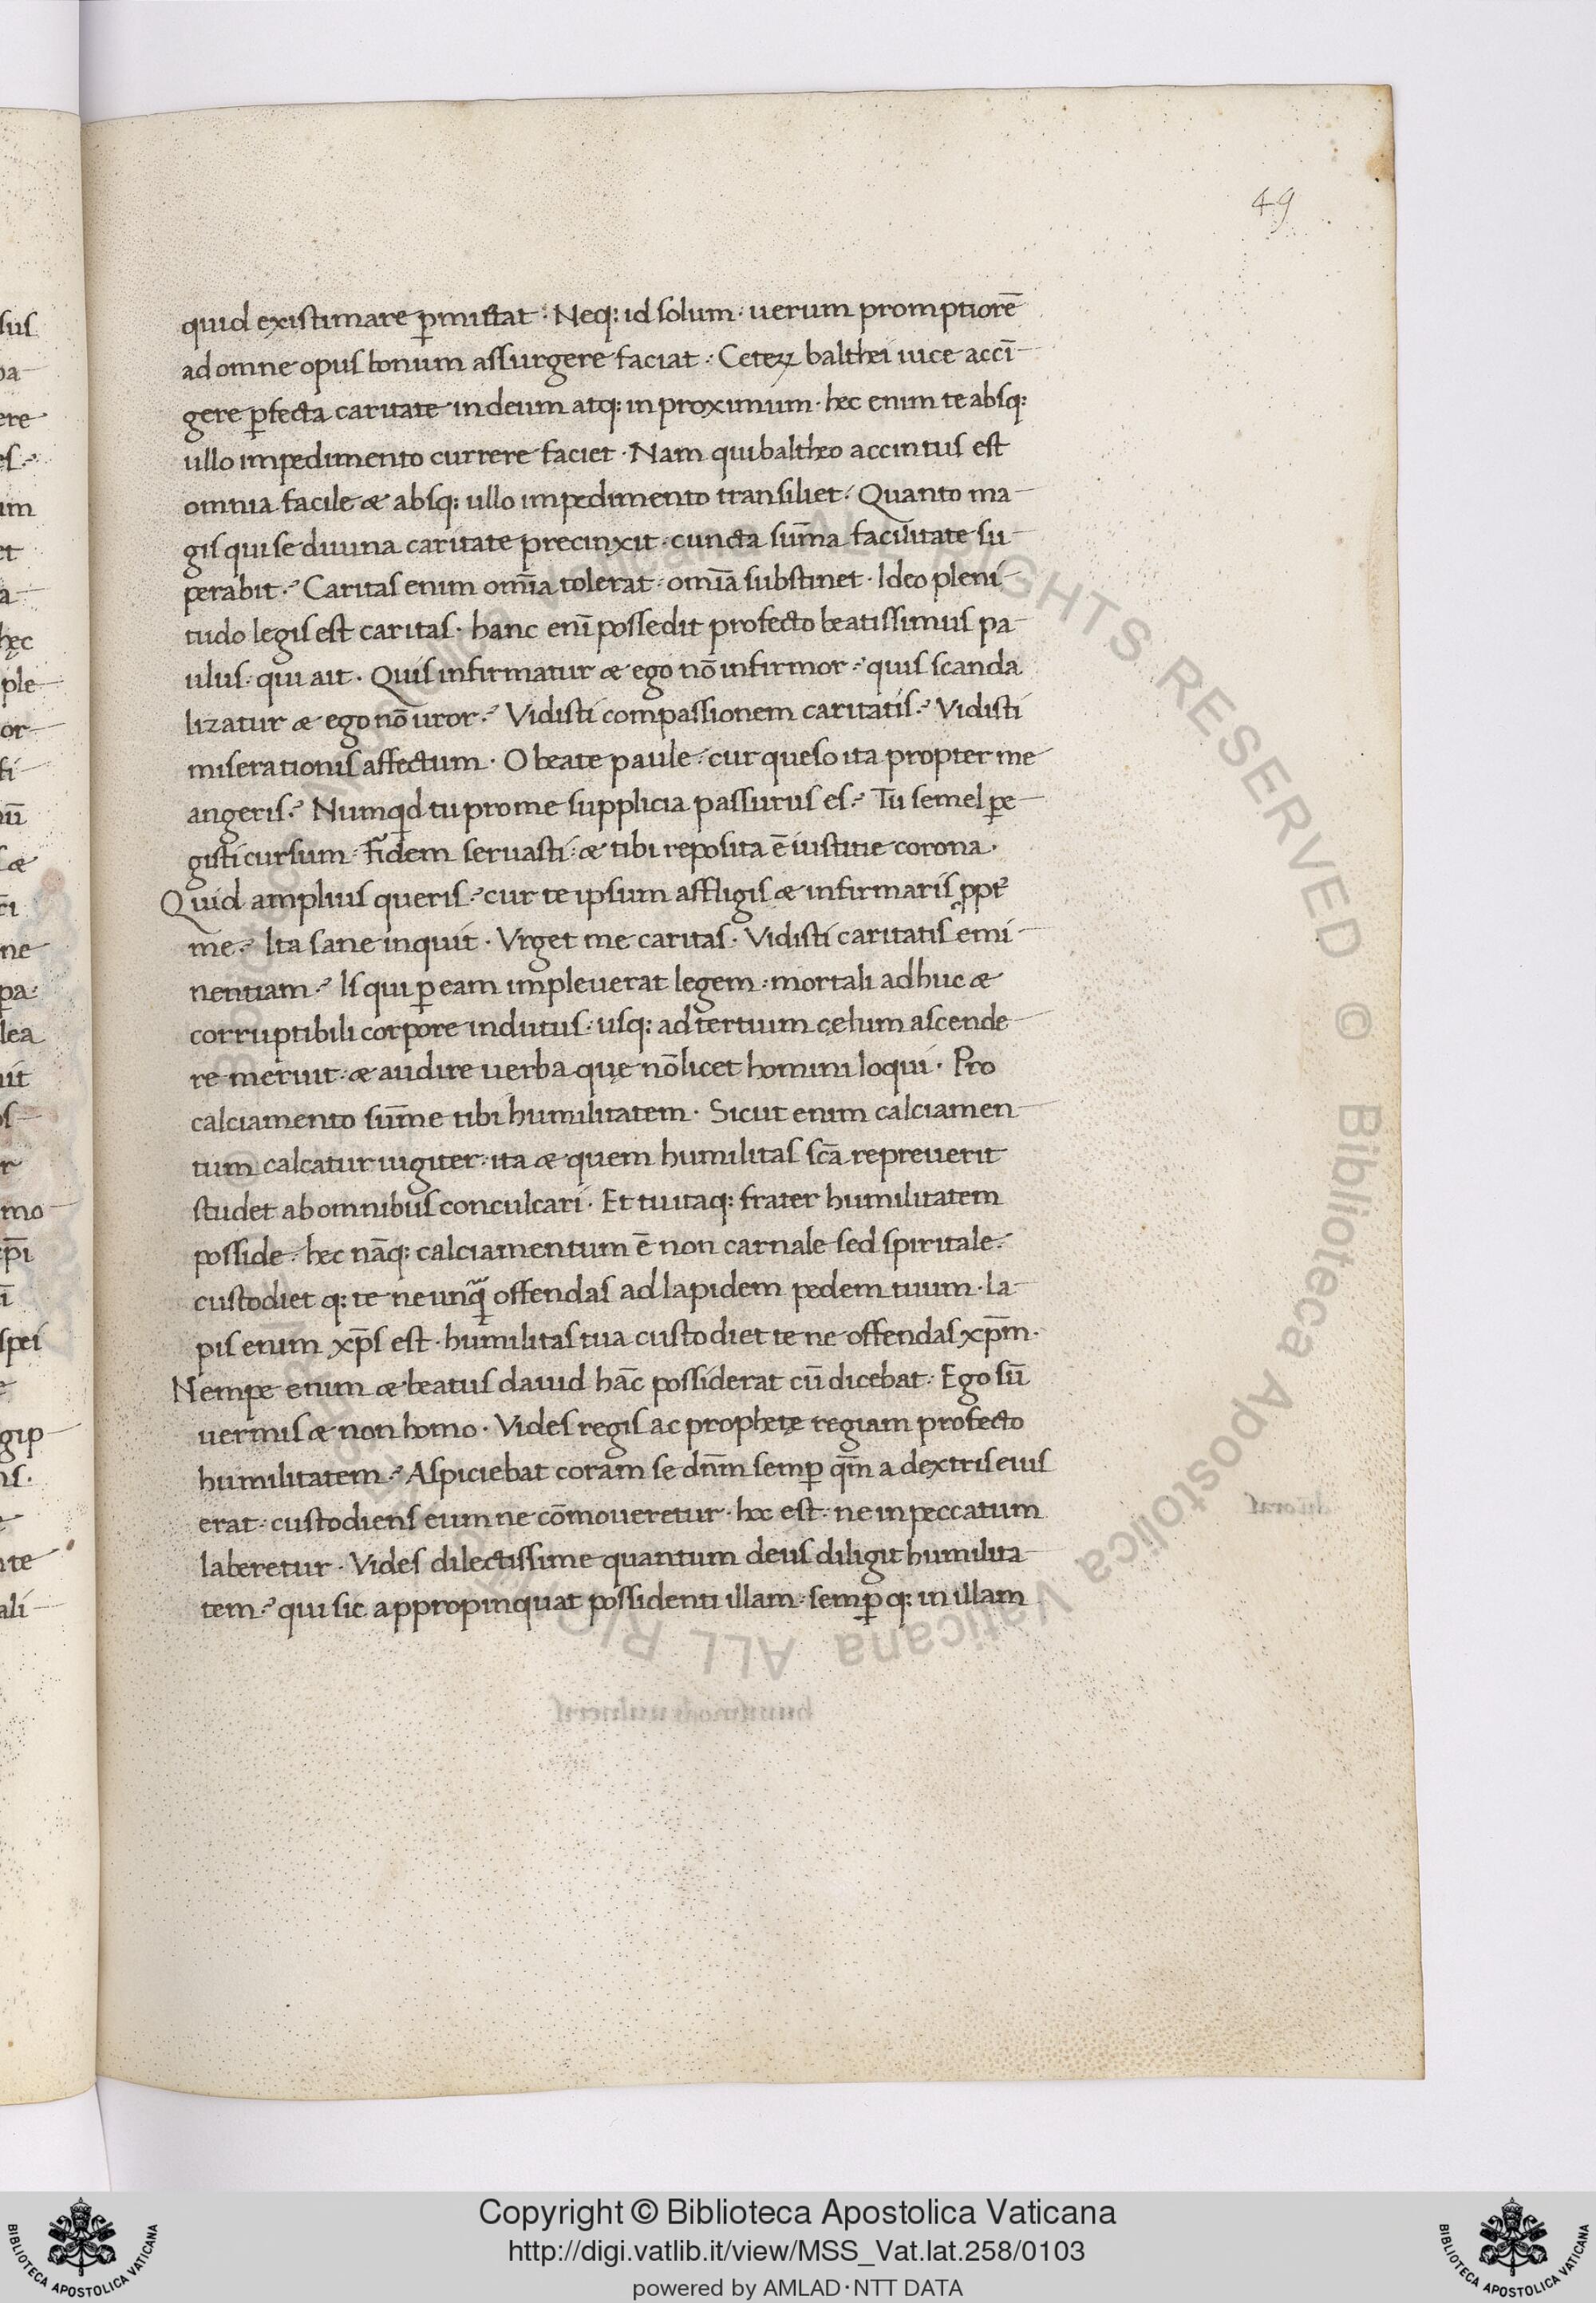 49
quid existimare p̄mittat : Neq: id solum : uerum promptiorē
ad omne opus bonum assurgere faciat : Ceteꝝ balthei uice accī
gere p̄fecta caritate in deum atq: in proximum · hec enim te absq:
ullo impedimento currere faciet · Nam qui baltheo accintus est
omnia facile æ absq: ullo impedimento transiliet : Quanto ma
gis qui se diuina caritate precinxit : cuncta sum̄a facilitate su
perabit :' Caritas enim omīa tolerat : omīa substinet · Ideo pleni
tudo legis est caritas · hanc enī possedit profecto beatissimus pa
ulus : qui ait · Quis infirmatur æ ego nō infirmor :' quis scanda
lizatur æ ego nō uror :' Vidisti compassionem caritatis :' Vidisti
miserationis affectum · O beate paule : cur queso ita propter me
angeris :' Numqd tu pro me supplicia passurus es :' Tu semel ꝑe
gisti cursum : Fidem seruasti : æ tibi reposita ē iustitie corona ·
Quid amplius queris :' cur te ipsum affligis æ infirmaris ꝓpt̄
me :' Ita sane inquit · Vrget me caritas · Vidisti caritatis emi
nentiam :' Is qui ꝑ eam impleuerat legem : mortali adhuc æ
corruptibili corpore indutus : usq: ad tertium cęlum ascende
re meruit : æ audire uerba quę nō licet homini loqui · Pro
calciamento sum̄e tibi humilitatem · Sicut enim calciamen
tum calcatur iugiter : ita æ quem humilitas scā repreuerit
studet ab omnibus conculcari · Et tu itaq: frater humilitatem
posside : hec nāq: calciamentum ē non carnale sed spiritale :'
custodiet q: te ne unq̄ offendas ad lapidem pedem tuum · la
pis enim xp̄s est · humilitas tua custodiet te ne offendas xp̄m ·
Nempe enim æ beatus dauid hāc possiderat cū dicebat : Ego sū
uermis æ non homo · Vides regis ac prophetę regiam profecto
humilitatem :' Aspiciebat coram se dn̄m semꝑ qm̄ a dextris eius
erat : custodiens eum ne cōmoueretur · hoc est : ne in peccatum
laberetur · Vides dilectissime quantum deus diligit humilita
tem :' qui sic appropinquat possidenti illam : semꝑ q: in illam
Copyright © Biblioteca Apostolica Vaticana
http://digi.vatlib.it/view/MSS_Vat.lat.258/0103
powered by AMLAD·NTT DATA